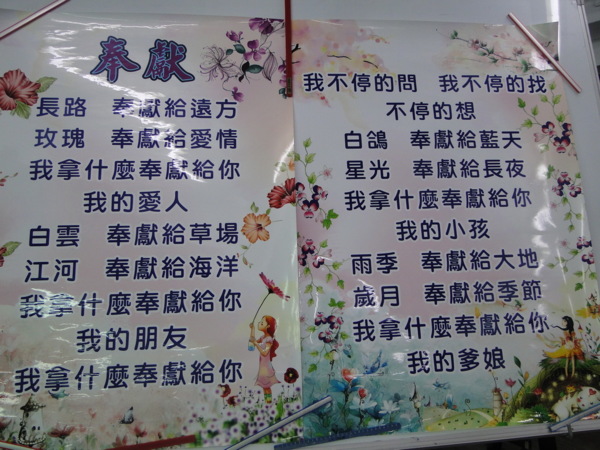 奉獻
長路 奉獻給遠方
玫瑰 奉獻給愛情
我拿什麼奉獻給你
我的愛人
白雲 奉獻給草場
江河 奉獻給海洋
我拿什麼奉獻給你
我的朋友
我拿什麼奉獻給你
我不停的問 我不停的找
不停的想
白鴿 奉獻給藍天
星光 奉獻給長夜
我拿什麼奉獻給你
我的小孩
雨季 奉獻給大地
歲月 奉獻給季節
我拿什麼奉獻給你
我的爹娘